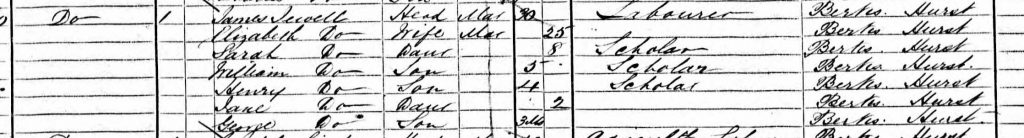 Do 1 James Jewell Head Mar 30 Labourer Berks. Hurst
Elizabeth Do Wife Mar 25 Berks. Hurst
Sarah Do Daur 8 Scholar Berks. Hurst
William Do Son 5 Scholar Berks Hurst
Henry Do Son 4 Scholar Berks. Hurst
Jane Do Daur 2 Berks. Hurst
George Do Son 3Mo Berks. Hurst